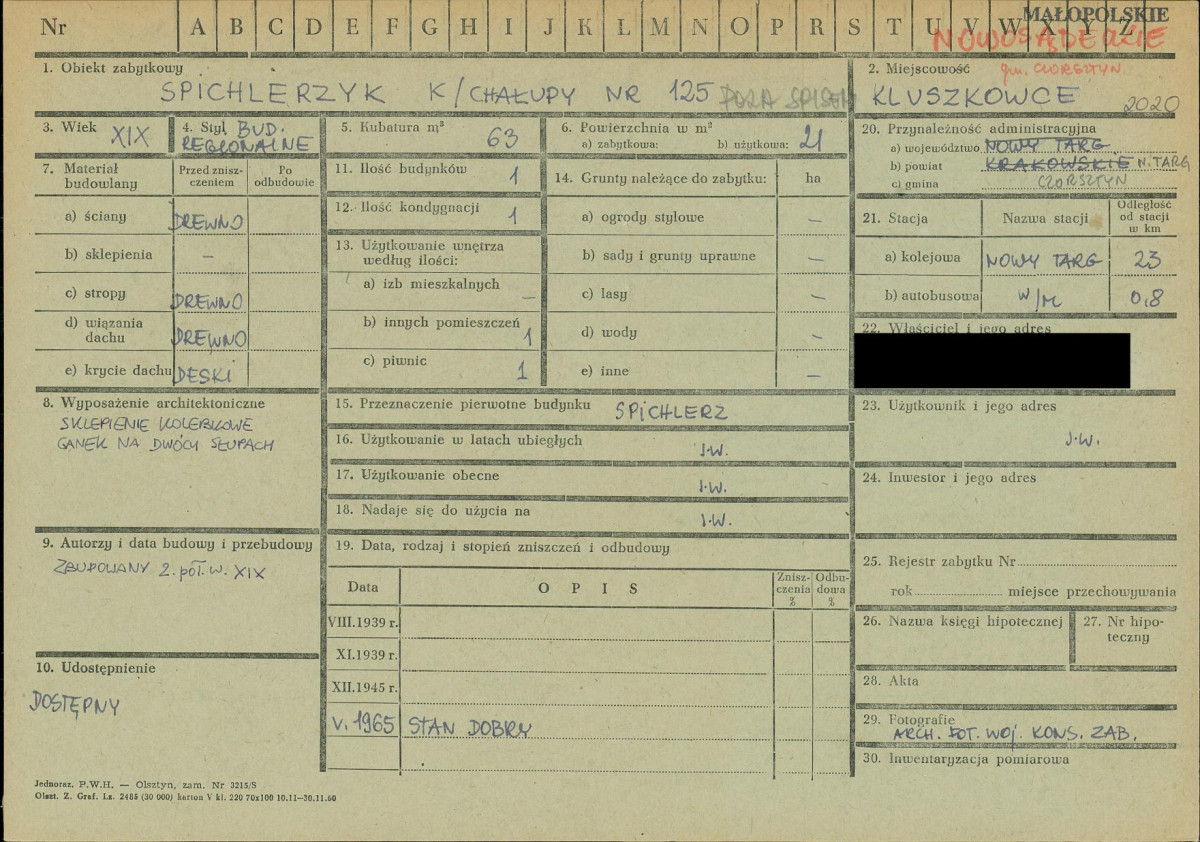 MAŁOPOLSKIE
Nr A B C D E F G H I J K L M N O P R S T U V W X Y Z
NOWOSĄDECKIE
1. Obiekt zabytkowy
SPICHLERZYK K/CHAŁUPY NR 125 POZA SPISEM
2. Miejscowość gm. CZORSZTYN
KLUSZKOWCE 2020
3. Wiek XIX
4. Styl BUD. REGIONALNE
5. Kubatura m³ 63
6. Powierzchnia w m²
a) zabytkowa: b) użytkowa: 21
7. Materiał budowlany
Przed zniszczeniem
Po odbudowie
a) ściany DREWNO
b) sklepienia –
c) stropy DREWNO
d) wiązania dachu DREWNO
e) krycie dachu DESKI
8. Wyposażenie architektoniczne
SKLEPIENIE KOLEBKOWE
GANEK NA DWÓCH SŁUPACH
9. Autorzy i data budowy i przebudowy
ZBUDOWANY 2. poł. w. XIX
10. Udostępnienie
DOSTĘPNY
11. Ilość budynków 1
12. Ilość kondygnacji 1
13. Użytkowanie wnętrza według ilości:
a) izb mieszkalnych –
b) innych pomieszczeń 1
c) piwnic 1
14. Grunty należące do zabytku: ha
a) ogrody stylowe –
b) sady i grunty uprawne –
c) lasy –
d) wody –
e) inne –
15. Przeznaczenie pierwotne budynku SPICHLERZ
16. Użytkowanie w latach ubiegłych J.W.
17. Użytkowanie obecne J.W.
18. Nadaje się do użycia na J.W.
19. Data, rodzaj i stopień zniszczeń i odbudowy
Data OPIS Zniszczenia % Odbudowa %
VIII.1939 r.
XI.1939 r.
XII.1945 r.
V. 1965 STAN DOBRY
20. Przynależność administracyjna
a) województwo NOWY TARG
b) powiat KRAKOWSKIE N. TARG
c) gmina CZORSZTYN
21. Stacja Nazwa stacji Odległość od stacji w km
a) kolejowa NOWY TARG 23
b) autobusowa W/M 0,8
22. Właściciel i jego adres
23. Użytkownik i jego adres
J.W.
24. Inwestor i jego adres
25. Rejestr zabytku Nr
rok miejsce przechowywania
26. Nazwa księgi hipotecznej
27. Nr hipoteczny
28. Akta
29. Fotografie
ARCH. FOT. WOJ. KONS. ZAB.
30. Inwentaryzacja pomiarowa
Jednoraz. P.W.H. — Olsztyn, zam. Nr 3215/S
Olszt. Z. Graf. Lz. 2485 (30 000) karton V kl. 220 70x100 10.11—30.11.60